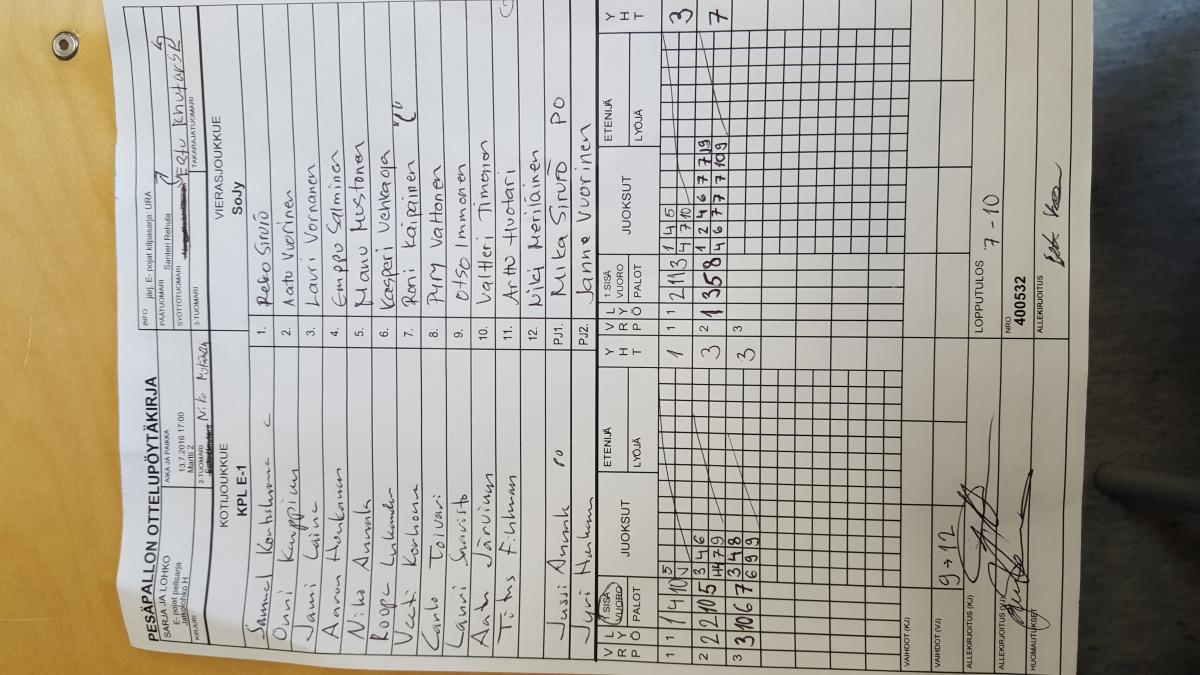 PESÄPALLON OTTELUPÖYTÄKIRJA
SARJA JA LOHKO
E- pojat pelisarja
Jatkolohko H
AIKA JA PAIKKA
13.7.2016 17:00
Martti 2
INFO järj. E- pojat kilpasarja: URA
PÄÄTUOMARI Santeri Rehula
SYÖTTÖTUOMARI
KIRJURI
2-TUOMARI Niko
3-TUOMARI
TAKARAJATUOMARI
KOTIJOUKKUE
KPL E-1
VIERASJOUKKUE
SoJy
1. Reko Sirviö
Onni Kauppinen 2. Aatu Vuorinen
Janni Laine 3. Lauri Vornanen
Aaron Honkanen 4. Emppu Salminen
Niko Annala 5. Manu Mustonen
Roope 6. Kasperi Vehkaoja
Veeti Korhonen 7. Roni Kaipainen "C"
Carlo Toivari 8. Pyry Valtonen
Lauri 9. Otso Immonen
Aatu Järvinen 10. Valtteri Timonen
11. Arttu Huotari
12. Niki Meriläinen
Jussi Annala PO PJ1. Mika Sirviö PO
Jyri PJ2. Janne Vuorinen
V R P L Y Ö 1.SISÄ VUORO PALOT JUOKSUT ETENIJÄ LYÖJÄ Y H T
V R P L Y Ö 1.SISÄ VUORO PALOT JUOKSUT ETENIJÄ LYÖJÄ Y H T
1 1 1 4 10 5 1
1 1 2 11 3 1 4 5 3
4 7 10
2 2 2 10 5 3 4 6 3
4 7 9
2 1 3 5 8 1 2 4 6 7 7 9 7
4 6 7 7 7 10 9
3 3 10 6 7 3 4 8 3
6 9 9
3
VAIHDOT (KJ)
VAIHDOT (VJ) 9→12
ALLEKIRJOITUS (KJ)
ALLEKIRJOITUS (VJ)
HUOMAUTUKSET
LOPPUTULOS 7 - 10
NRO
400532
ALLEKIRJOITUS